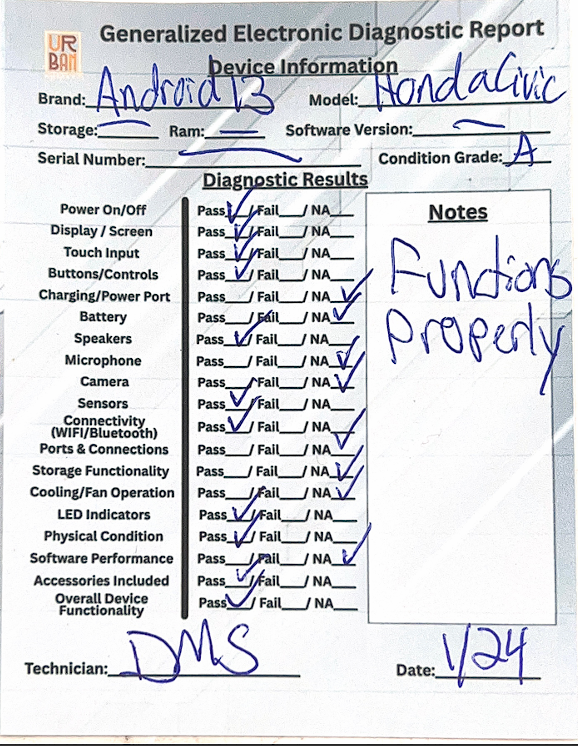 UR
BAN
Generalized Electronic Diagnostic Report
Device Information
Brand: Android 13 Model: HondaCivic
Storage:____ Ram:____ Software Version:____
Serial Number:____ Condition Grade: A
Diagnostic Results
Power On/Off Pass✓/Fail__/NA__
Display / Screen Pass✓/Fail__/NA__
Touch Input Pass✓/Fail__/NA__
Buttons/Controls Pass✓/Fail__/NA__
Charging/Power Port Pass__/Fail__/NA✓
Battery Pass__/Fail__/NA✓
Speakers Pass✓/Fail__/NA__
Microphone Pass__/Fail__/NA✓
Camera Pass__/Fail__/NA✓
Sensors Pass✓/Fail__/NA__
Connectivity
(WIFI/Bluetooth) Pass✓/Fail__/NA__
Ports & Connections Pass__/Fail__/NA✓
Storage Functionality Pass__/Fail__/NA✓
Cooling/Fan Operation Pass__/Fail__/NA✓
LED Indicators Pass✓/Fail__/NA__
Physical Condition Pass✓/Fail__/NA__
Software Performance Pass__/Fail__/NA✓
Accessories Included Pass✓/Fail__/NA__
Overall Device
Functionality Pass✓/Fail__/NA__
Notes
Functions
Properly
Technician: DMS Date: 1/24